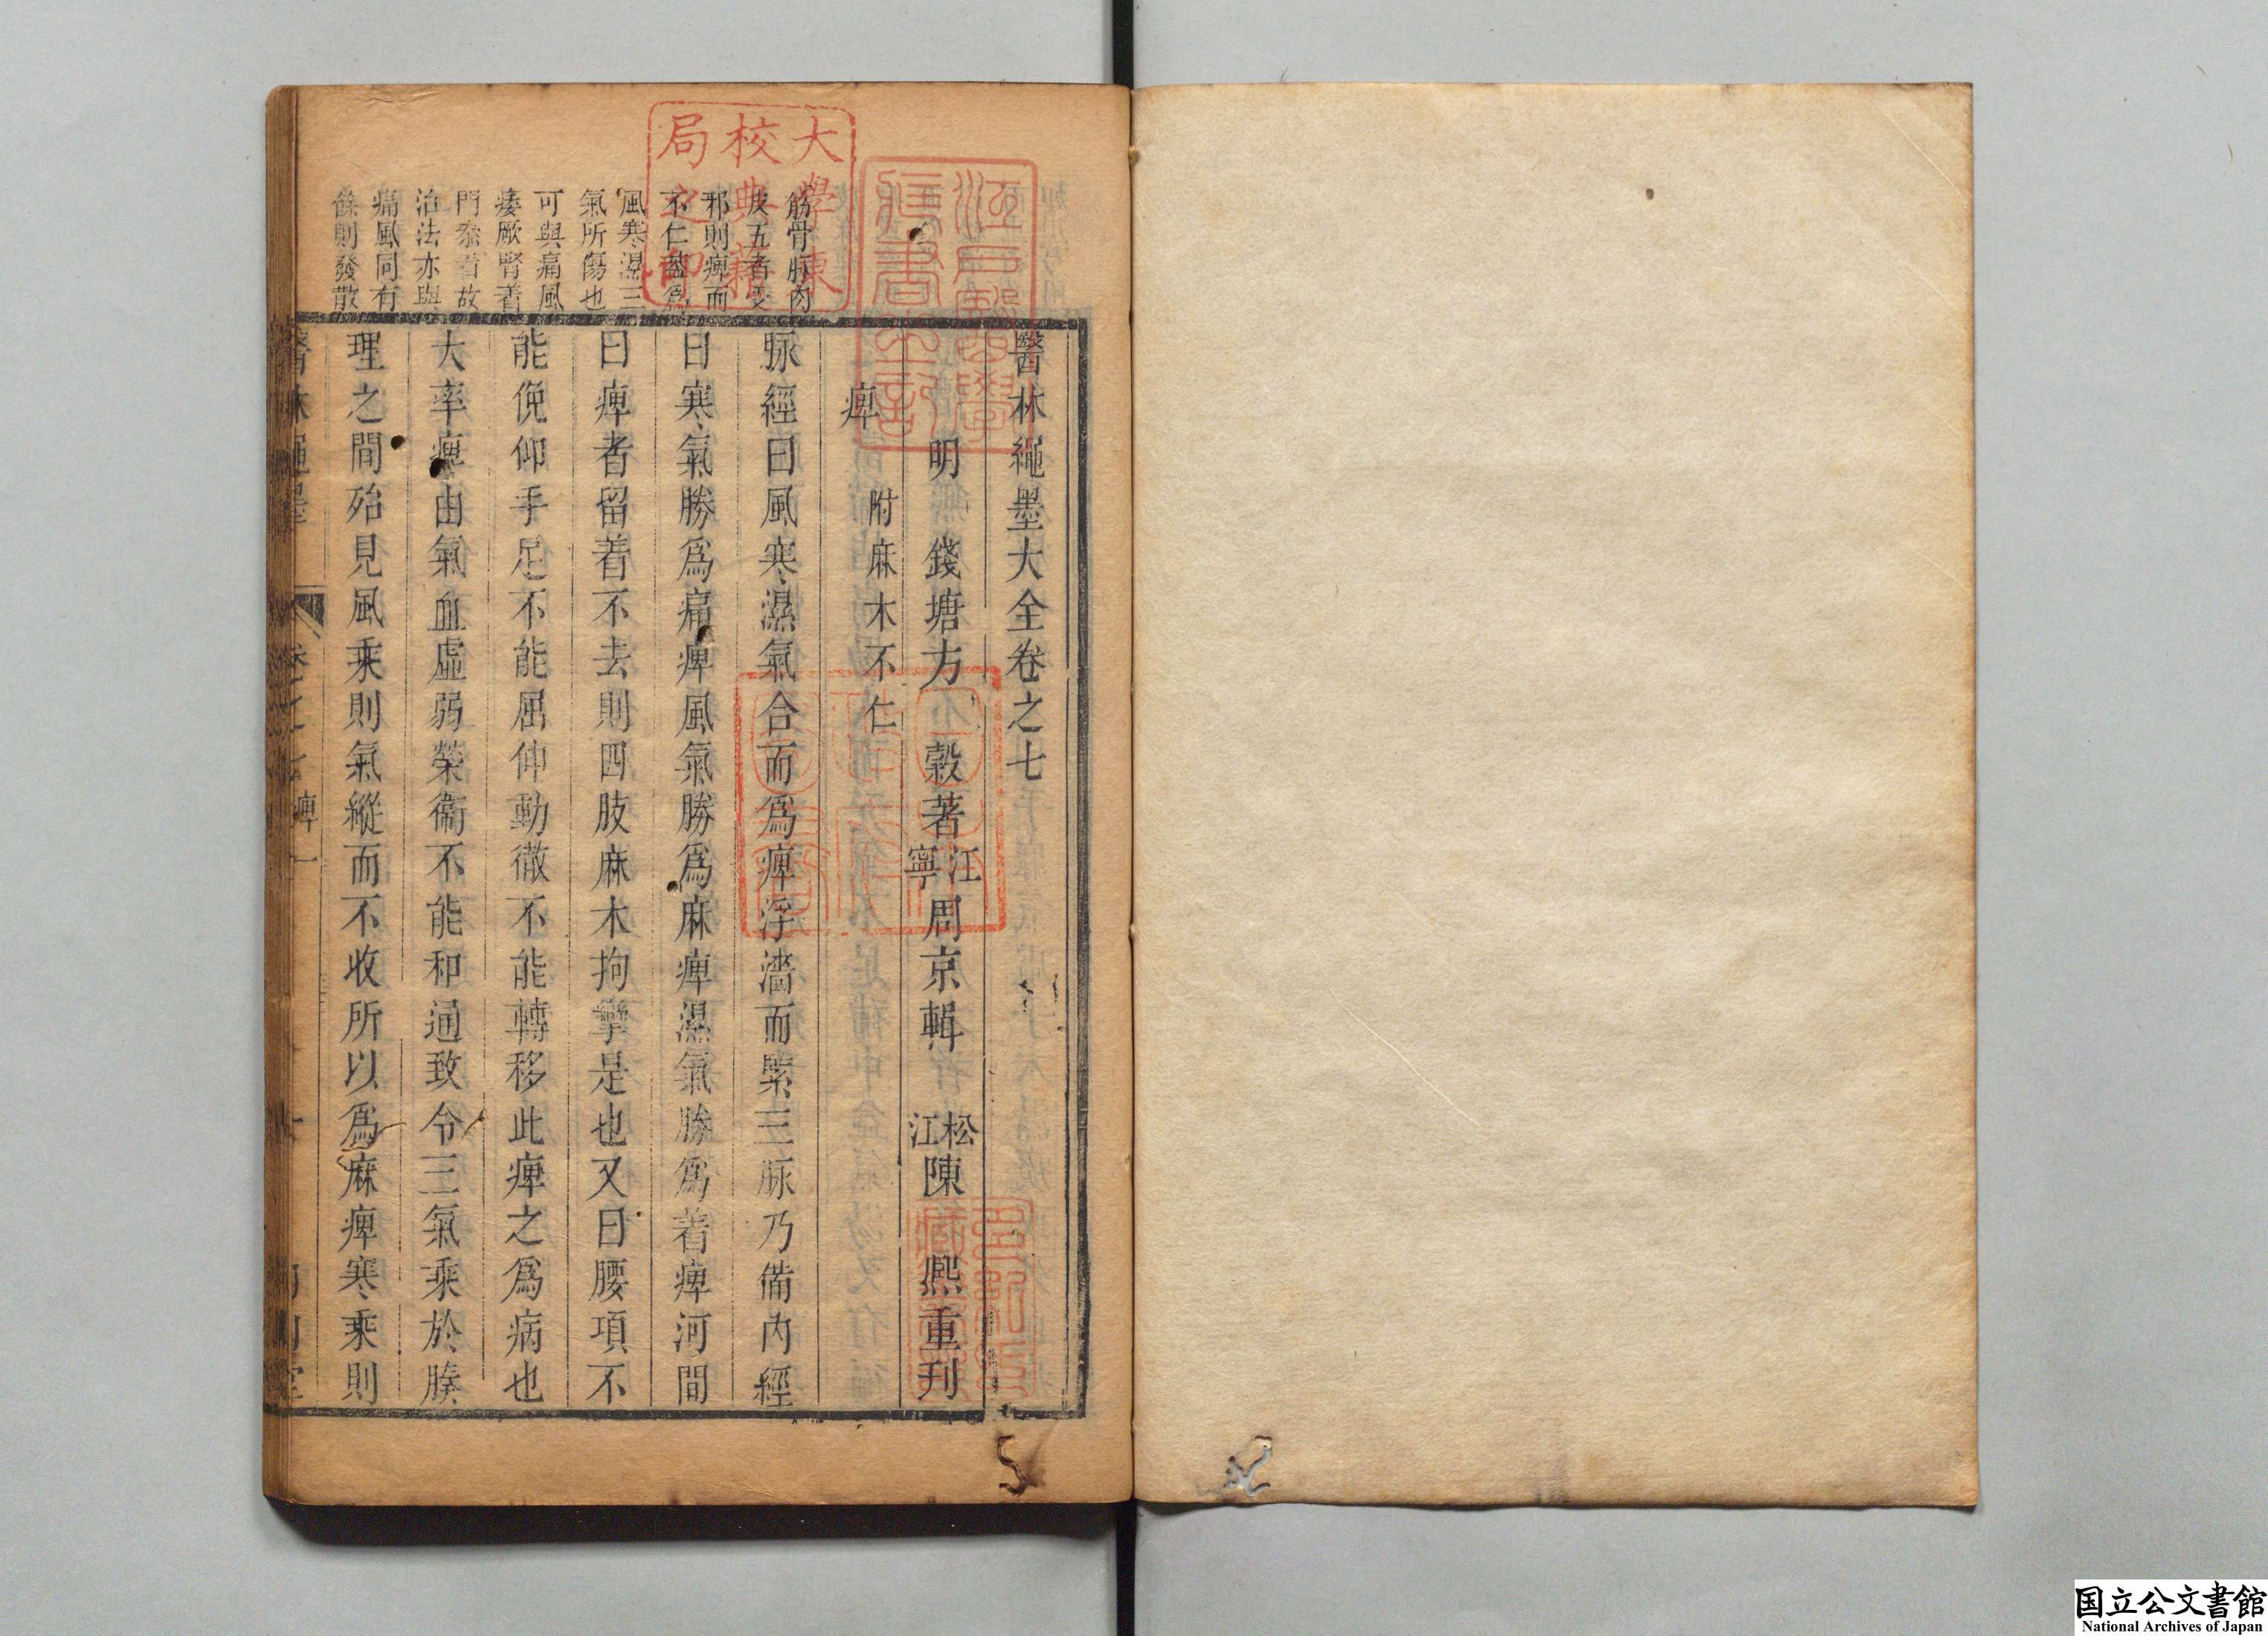 醫林繩墨大全卷之七
明 錢塘方 穀著 江寧周京輯 松江陳 熈重刋
痺 附麻木不仁
脉經曰風寒濕氣合而爲痺浮濇而緊三脉乃備内經
曰寒氣勝爲痛痺風氣勝爲麻痺濕氣勝爲着痺河間
曰痺者留着不去則四肢麻木拘攣是也又曰腰項不
能俛仰手足不能屈伸動徹不能轉移此痺之爲病也
大率痺由氣血虛弱榮衞不能和通致令三氣乘於腠
理之間殆見風乘則氣縱而不收所以爲麻痺寒乘則
筋骨脉肉
皮五者受
邪則痺而
不仁蓋爲
風寒濕三
氣所傷也
可與痛風
痿厥腎着
門叅看故
治法亦與
痛風同有
餘則發散
醫林繩墨 卷之七 痺 一
大學東
校典籍
局之印
江戸醫學
藏書之記
国立公文書館
National Archives of Japan